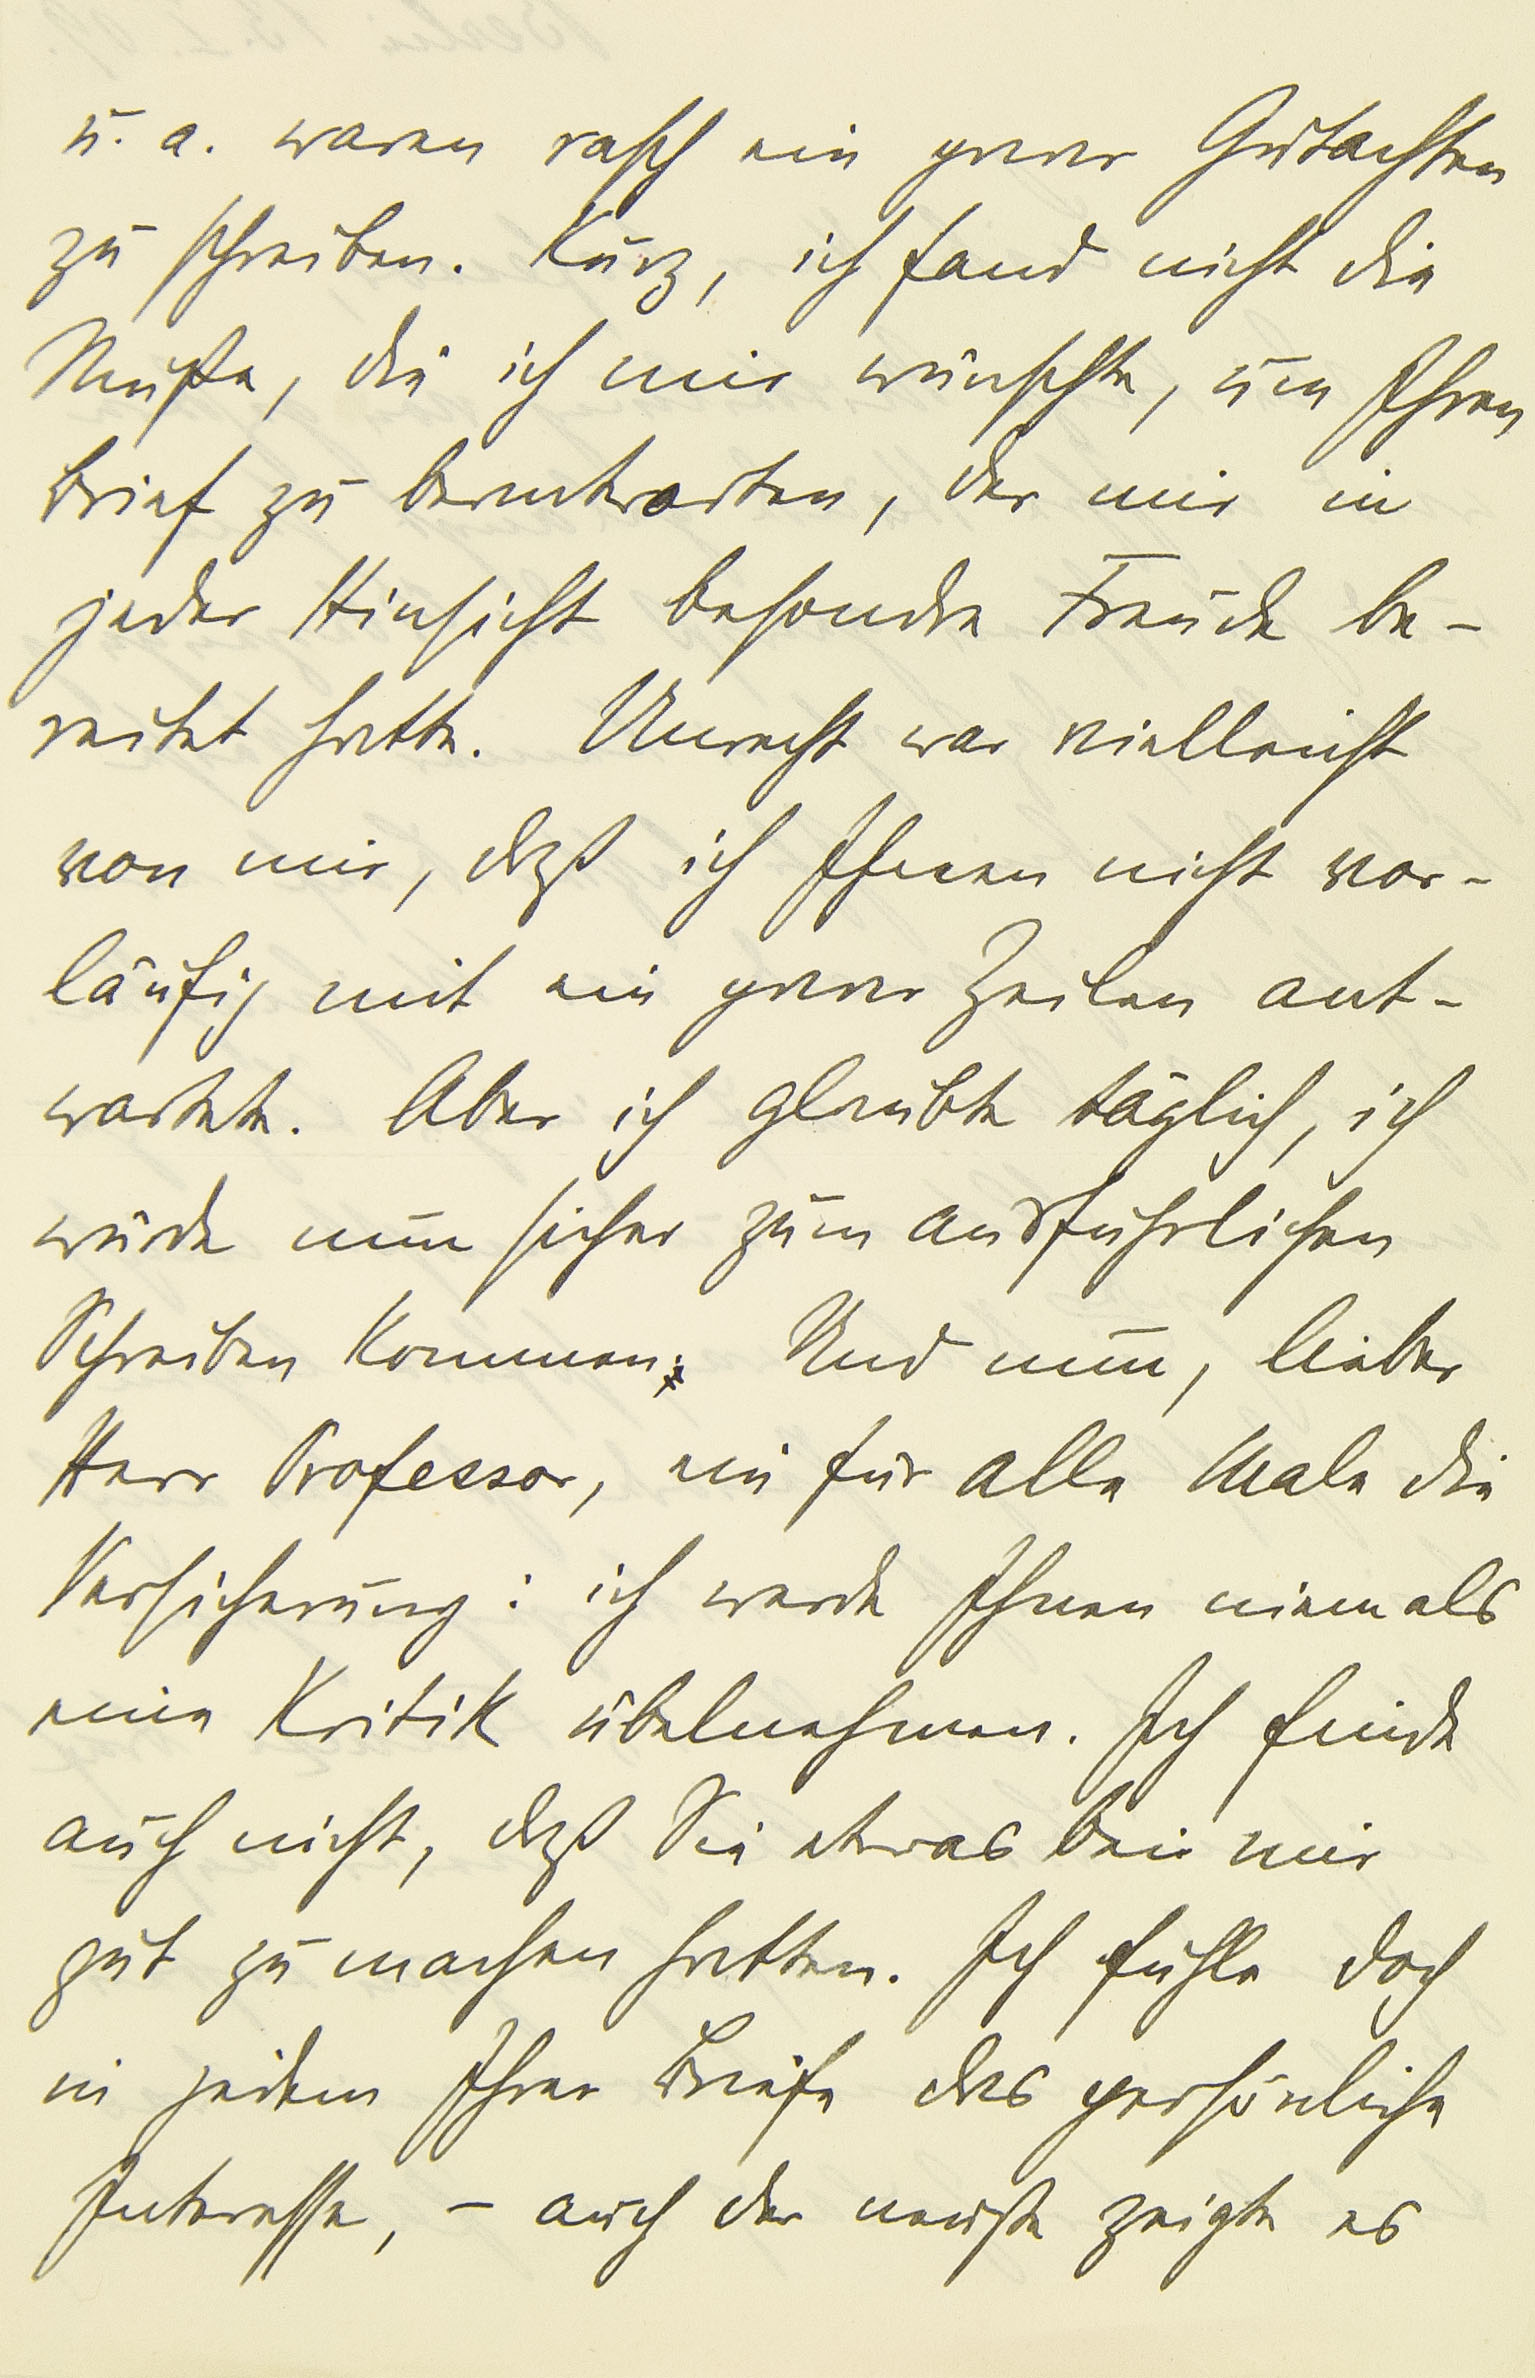 u. a. waren rasch ein paar Gutachten
zu schreiben. Kurz, ich fand nicht die
Muße, die ich mir wünschte, um Ihren
Brief zu beantworten, der mir in
jeder Hinsicht besondre Freude be-
reitet hatte. Unrecht war vielleicht
von mir, daß ich Ihnen nicht vor-
läufig mit ein paar Zeilen ant-
wortete. Aber ich glaubte täglich, ich
würde nun sicher zum ausführlichen
Schreiben kommen. Und nun, lieber
Herr Professor, ein für alle Male die
Versicherung: ich werde Ihnen niemals
eine Kritik übelnehmen. Ich finde
auch nicht, daß Sie etwas bei mir
gut zu machen hatten. Ich fühle doch
in jedem Ihrer Briefe das persönliche
Interesse, – auch der neuste zeigte es